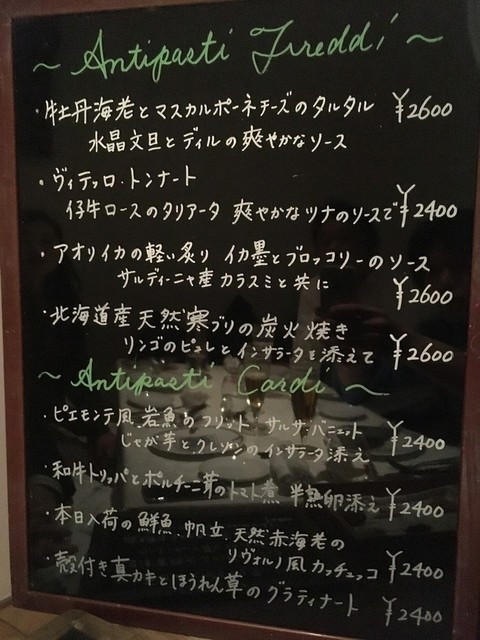 ~ Antipasti Freddi ~
・牡丹海老とマスカルポーネチーズのタルタル ¥2600
水晶文旦とディルの爽やかなソース
・ヴィテッロ・トンナート
仔牛ロースのタリアータ 爽やかなツナのソースで ¥2400
・アオリイカの軽い炙り イカ墨とブロッコリーのソース
サルディーニャ産カラスミと共に ¥2600
・北海道産天然寒ブリの炭火焼き
リンゴのピュレとインサラータを添えて ¥2600
~ Antipasti Cardi ~
・ピエモンテ風 岩魚のフリット サルサ・バニェット
じゃが芋とクレソンのインサラータ添え ¥2400
・和牛トリッパとポルチーニ茸のトマト煮 半熟卵添え ¥2400
・本日入荷の鮮魚、帆立、天然赤海老の
リヴォルノ風カッチュッコ ¥2400
・殻付き真カキとほうれん草のグラティナート ¥2400